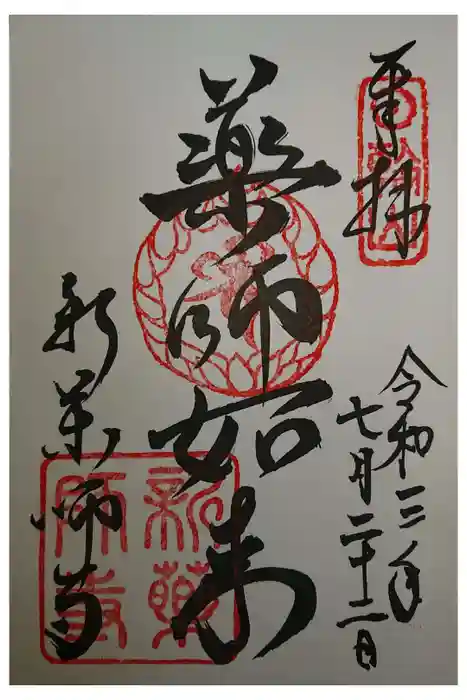 奉拝
令和三年
七月二十二日
薬師如来
新薬師寺
新薬師寺